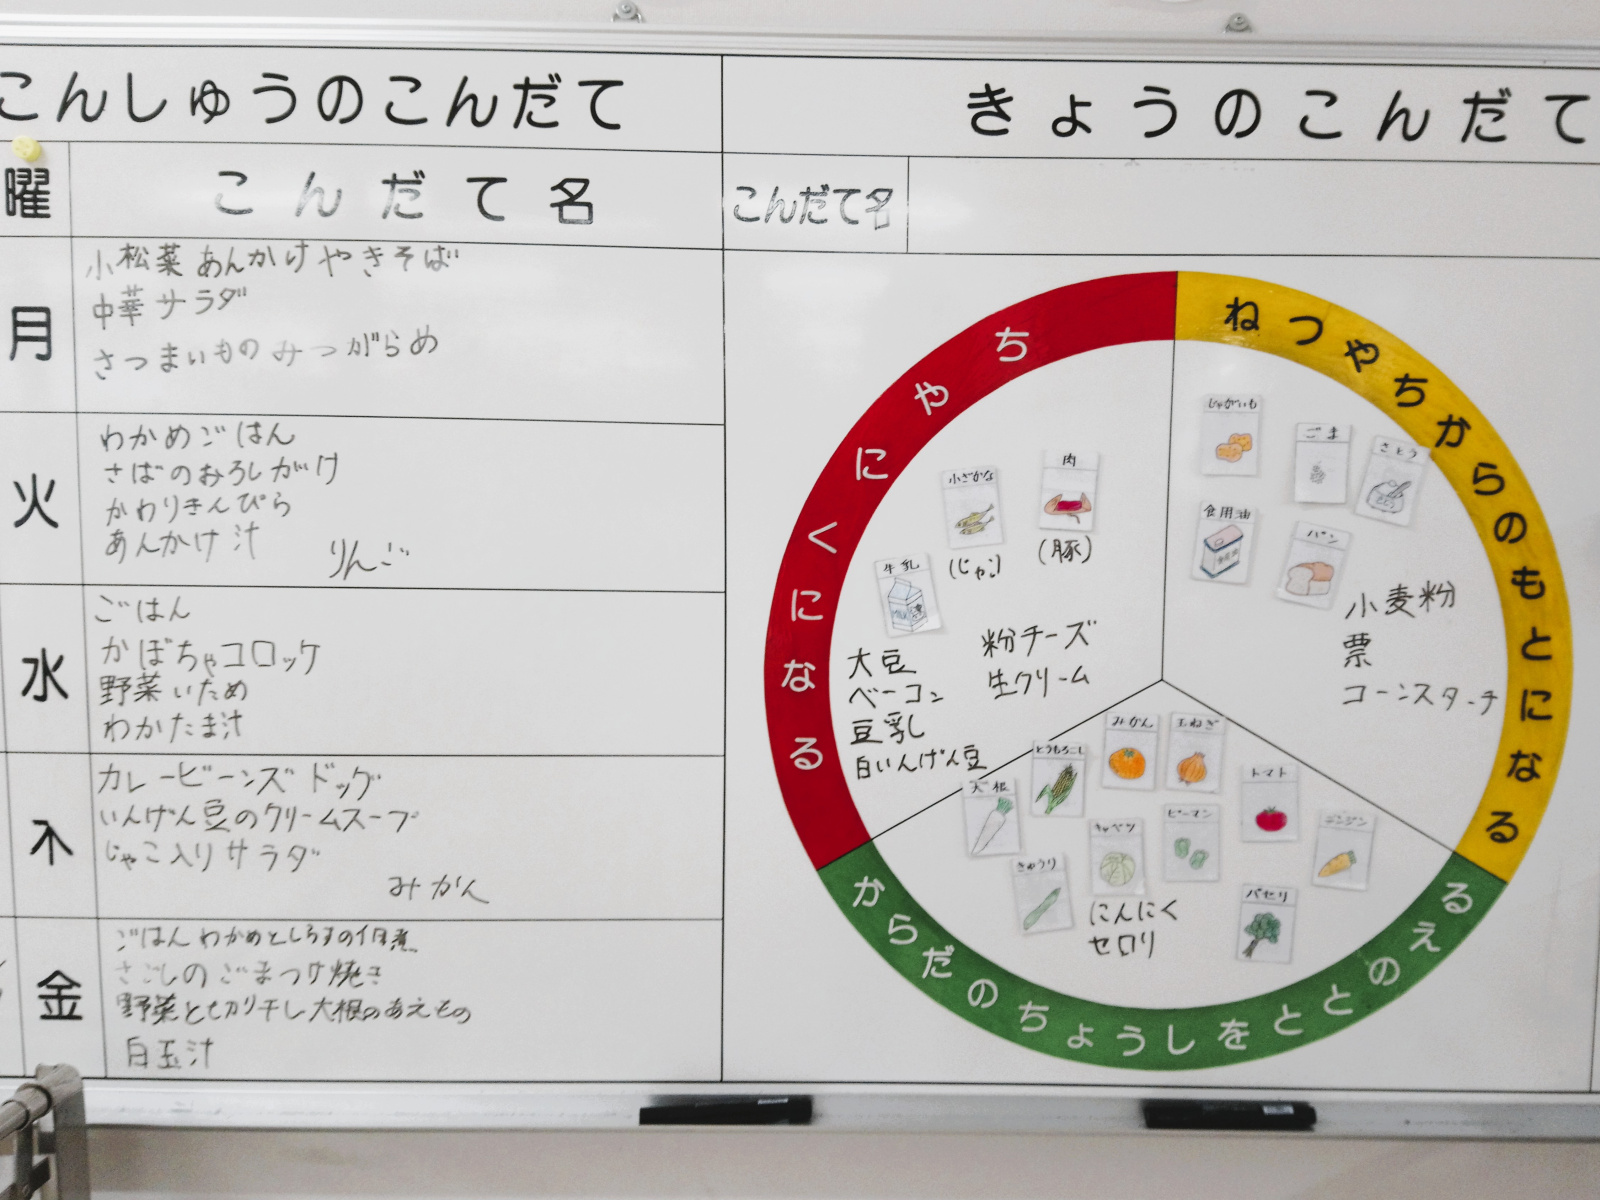 こんしゅうのこんだて
曜 こんだて名
月
小松菜あんかけやきそば
中華サラダ
さつまいものみつがらめ
火
わかめごはん
さばのおろしがけ
かわりきんぴら
あんかけ汁
りんご
水
ごはん
かぼちゃコロッケ
野菜いため
わかたま汁
木
カレービーンズドッグ
いんげん豆のクリームスープ
じゃこ入りサラダ
みかん
金
ごはん わかめとしらすの佃煮
さごしのごまつけ焼き
野菜と切り干し大根のあえもの
白玉汁
きょうのこんだて
こんだて名
ちやにくになる
小ざかな
(じゃこ)
肉
(豚)
牛乳
大豆
ベーコン
豆乳
白いんげん豆
粉チーズ
生クリーム
ねつやちからのもとになる
じゃがいも
ごま
さとう
食用油
パン
小麦粉
票
コーンスターチ
からだのちょうしをととのえる
みかん
玉ねぎ
とうもろこし
トマト
大根
キャベツ
ピーマン
ニンジン
きゅうり
パセリ
にんにく
セロリ